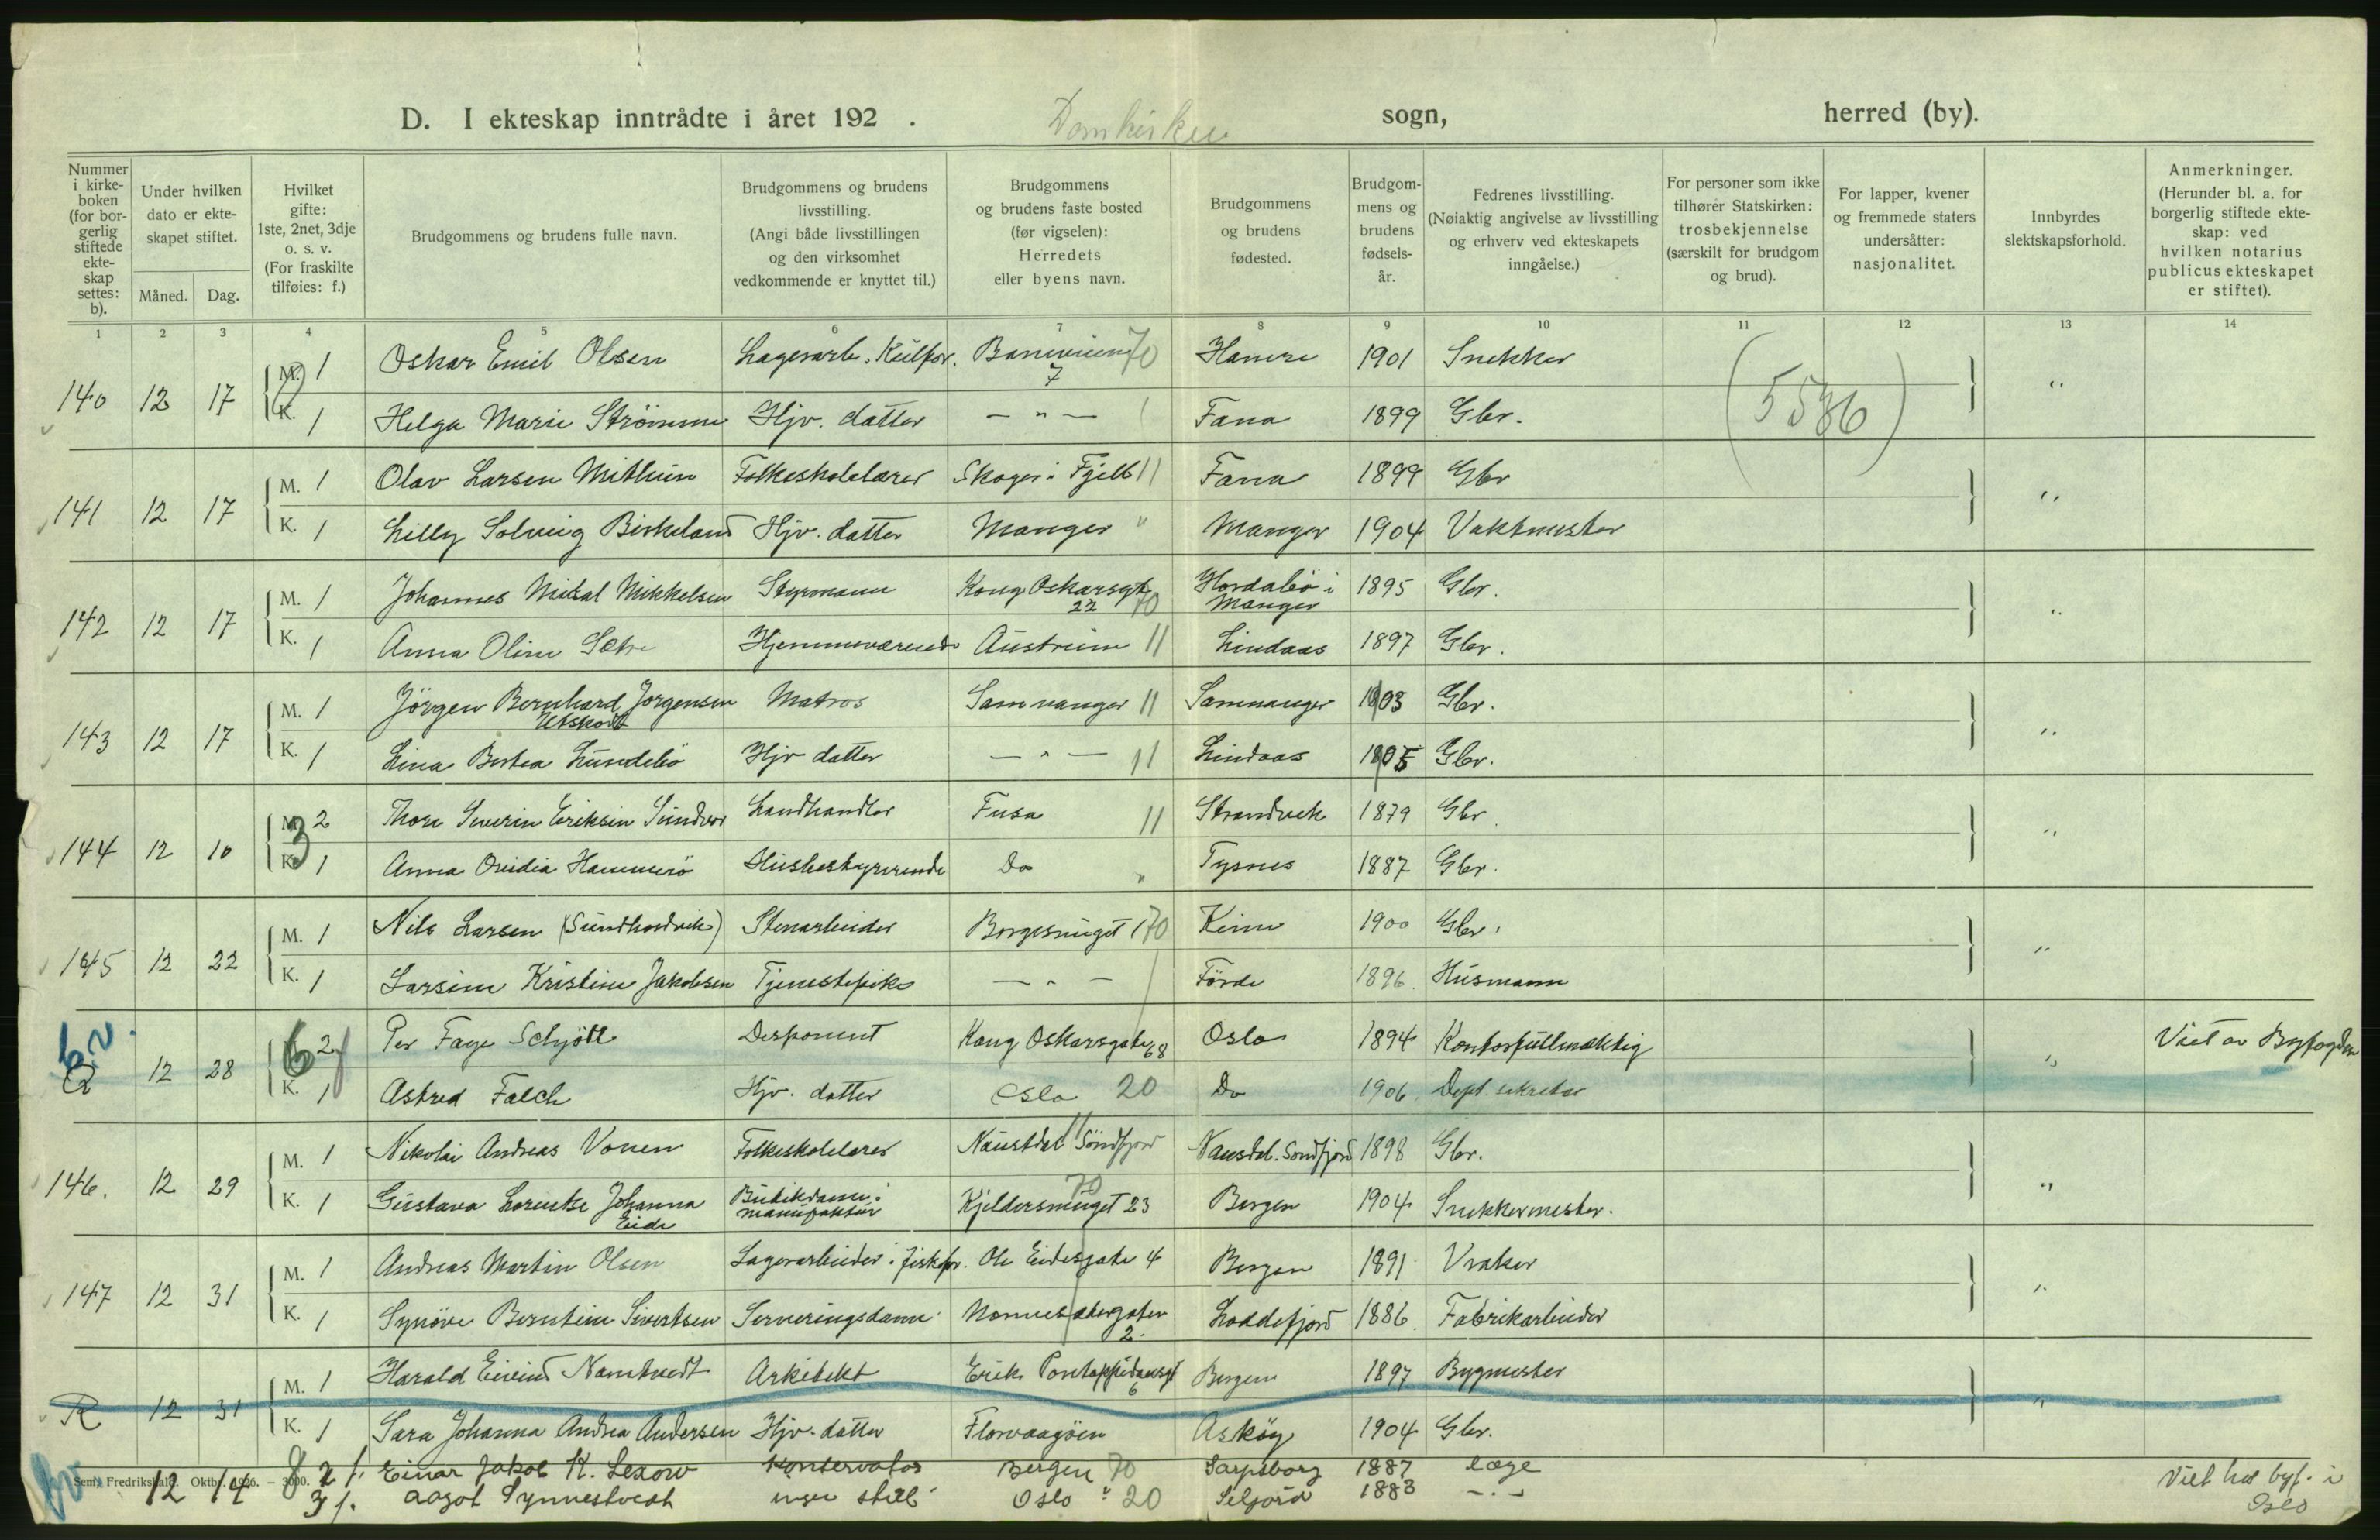 D. I ekteskap inntrådte i året 192 . Domkirken sogn, herred (by).
Nummer i kirke-boken (for bor-gerlig stiftede ekte-skap settes: b).
Under hvilken dato er ekte-skapet stiftet.
Måned. Dag.
Hvilket gifte: 1ste, 2net, 3dje o. s. v. (For fraskilte tilføies: f.)
Brudgommens og brudens fulle navn.
Brudgommens og brudens livsstilling. (Angi både livsstillingen og den virksomhet vedkommende er knyttet til.)
Brudgommens og brudens faste bosted (før vigselen): Herredets eller byens navn.
Brudgommens og brudens fødested.
Brudgom-mens og brudens fødsels-år.
Fedrenes livsstilling. (Nøiaktig angivelse av livsstilling og erhverv ved ekteskapets inngåelse.)
For personer som ikke tilhører Statskirken: trosbekjennelse (særskilt for brudgom og brud).
For lapper, kvener og fremmede staters undersåtter: nasjonalitet.
Innbyrdes slektskapsforhold.
Anmerkninger. (Herunder bl. a. for borgerlig stiftede ekte-skap: ved hvilken notarius publicus ekteskapet er stiftet).
1 2 3 4 5 6 7 8 9 10 11 12 13 14
140 12 17 M. 1 Oskar Emil Olsen Lagerarb. Kulfor. 7 70 Hamre 1901 Snekker
K. 1 Helga Marie Strømme Hjv. datter — " — Fana 1899 Gbr. (5536) "
141 12 17 M. 1 Olav Larsen Mithun Folkeskolelærer Skoge i Fjell 11 Fana 1899 Gbr
K. 1 Lilly Solveig Birkeland Hjv. datter Manger " Manger 1904 Vaktmester "
142 12 17 M. 1 Johannes Mikal Mikkelsen Styrmann Kong Oskarsgt. 22 70 Hordabø i Manger 1895 Gbr.
K. 1 Anna Oline Sætre Hjemmeværende Austrheim 11 Lindaas 1897 Gbr. "
143 12 17 M. 1 Jörgen Bernhard Jørgensen Utskot Matros Samnanger 11 Samnanger 1903 Gbr.
K. 1 Lina Bertea Lundebø Hjv datter — " — 11 Lindaas 1905 Gbr. "
144 12 10 3 M. 2 Thore Severin Eriksen Sundvor Landhandler Fusa 11 Strandvik 1879 Gbr.
K. 1 Anna Ovidia Hammerö Husbestyrerende Do " Tysnes 1887 Gbr. "
145 12 22 M. 1 Nils Larsen (Sundhordvik) Stenarbeider Borgesmuget 1 70 Kinn 1900 Gbr.
K. 1 Larsine Kristine Jakobsen Tjenestepike — " — Förde 1896. Husmann "
bv. 12 28 6 2 f Per Faye Schjött Disponent Kong Oskarsgate 68 Oslo 1894 Kontorfullmæktig Viet av Byfogden
K. 1 Astred Falch Hjv. datter Oslo 20 Do 1906 Dept. sekretær "
146. 12 29 M. 1 Nikolai Andreas Vonen Folkeskolelærer Naustdal Söndfjord 11 Nausdal. Sondfjord 1898 Gbr.
K. 1 Gustava Lorentse Johanna Eide Butikdame i manufaktur Kjeldersmuget 23 70 Bergen 1904 Snekkermester. "
147 12 31 M. 1 Andreas Martin Olsen Lagerarbeider i fiskefor. Ole Eidesgate 4 Bergen 1891 Vraker
K. 1 Synöve Berntine Sivertsen Serveringsdame Nonnesetergaten 2. Loddefjord 1886. Fabrikarbeider "
R 12 31 M. 1 Harald Eivind Namtvedt Arkitekt Erik Pontoppidansgt 6 Bergen 1897 Bygmester
K. 1 Sara Johanna Andrea Andersen Hjv. datter Florvaagöen Askøy 1904 Gbr. "
bv. 12 14 8 2 f. Einar Jakob K. Lexow Konservator Bergen 70 Sarpsborg 1887 læge Viet hos byf. i Oslo
3 f. Aagot Synnestvedt ingen still. Oslo " 20 Seljord 1883 — " —
Sem, Fredrikshald. Oktbr. 1926. – 3000.